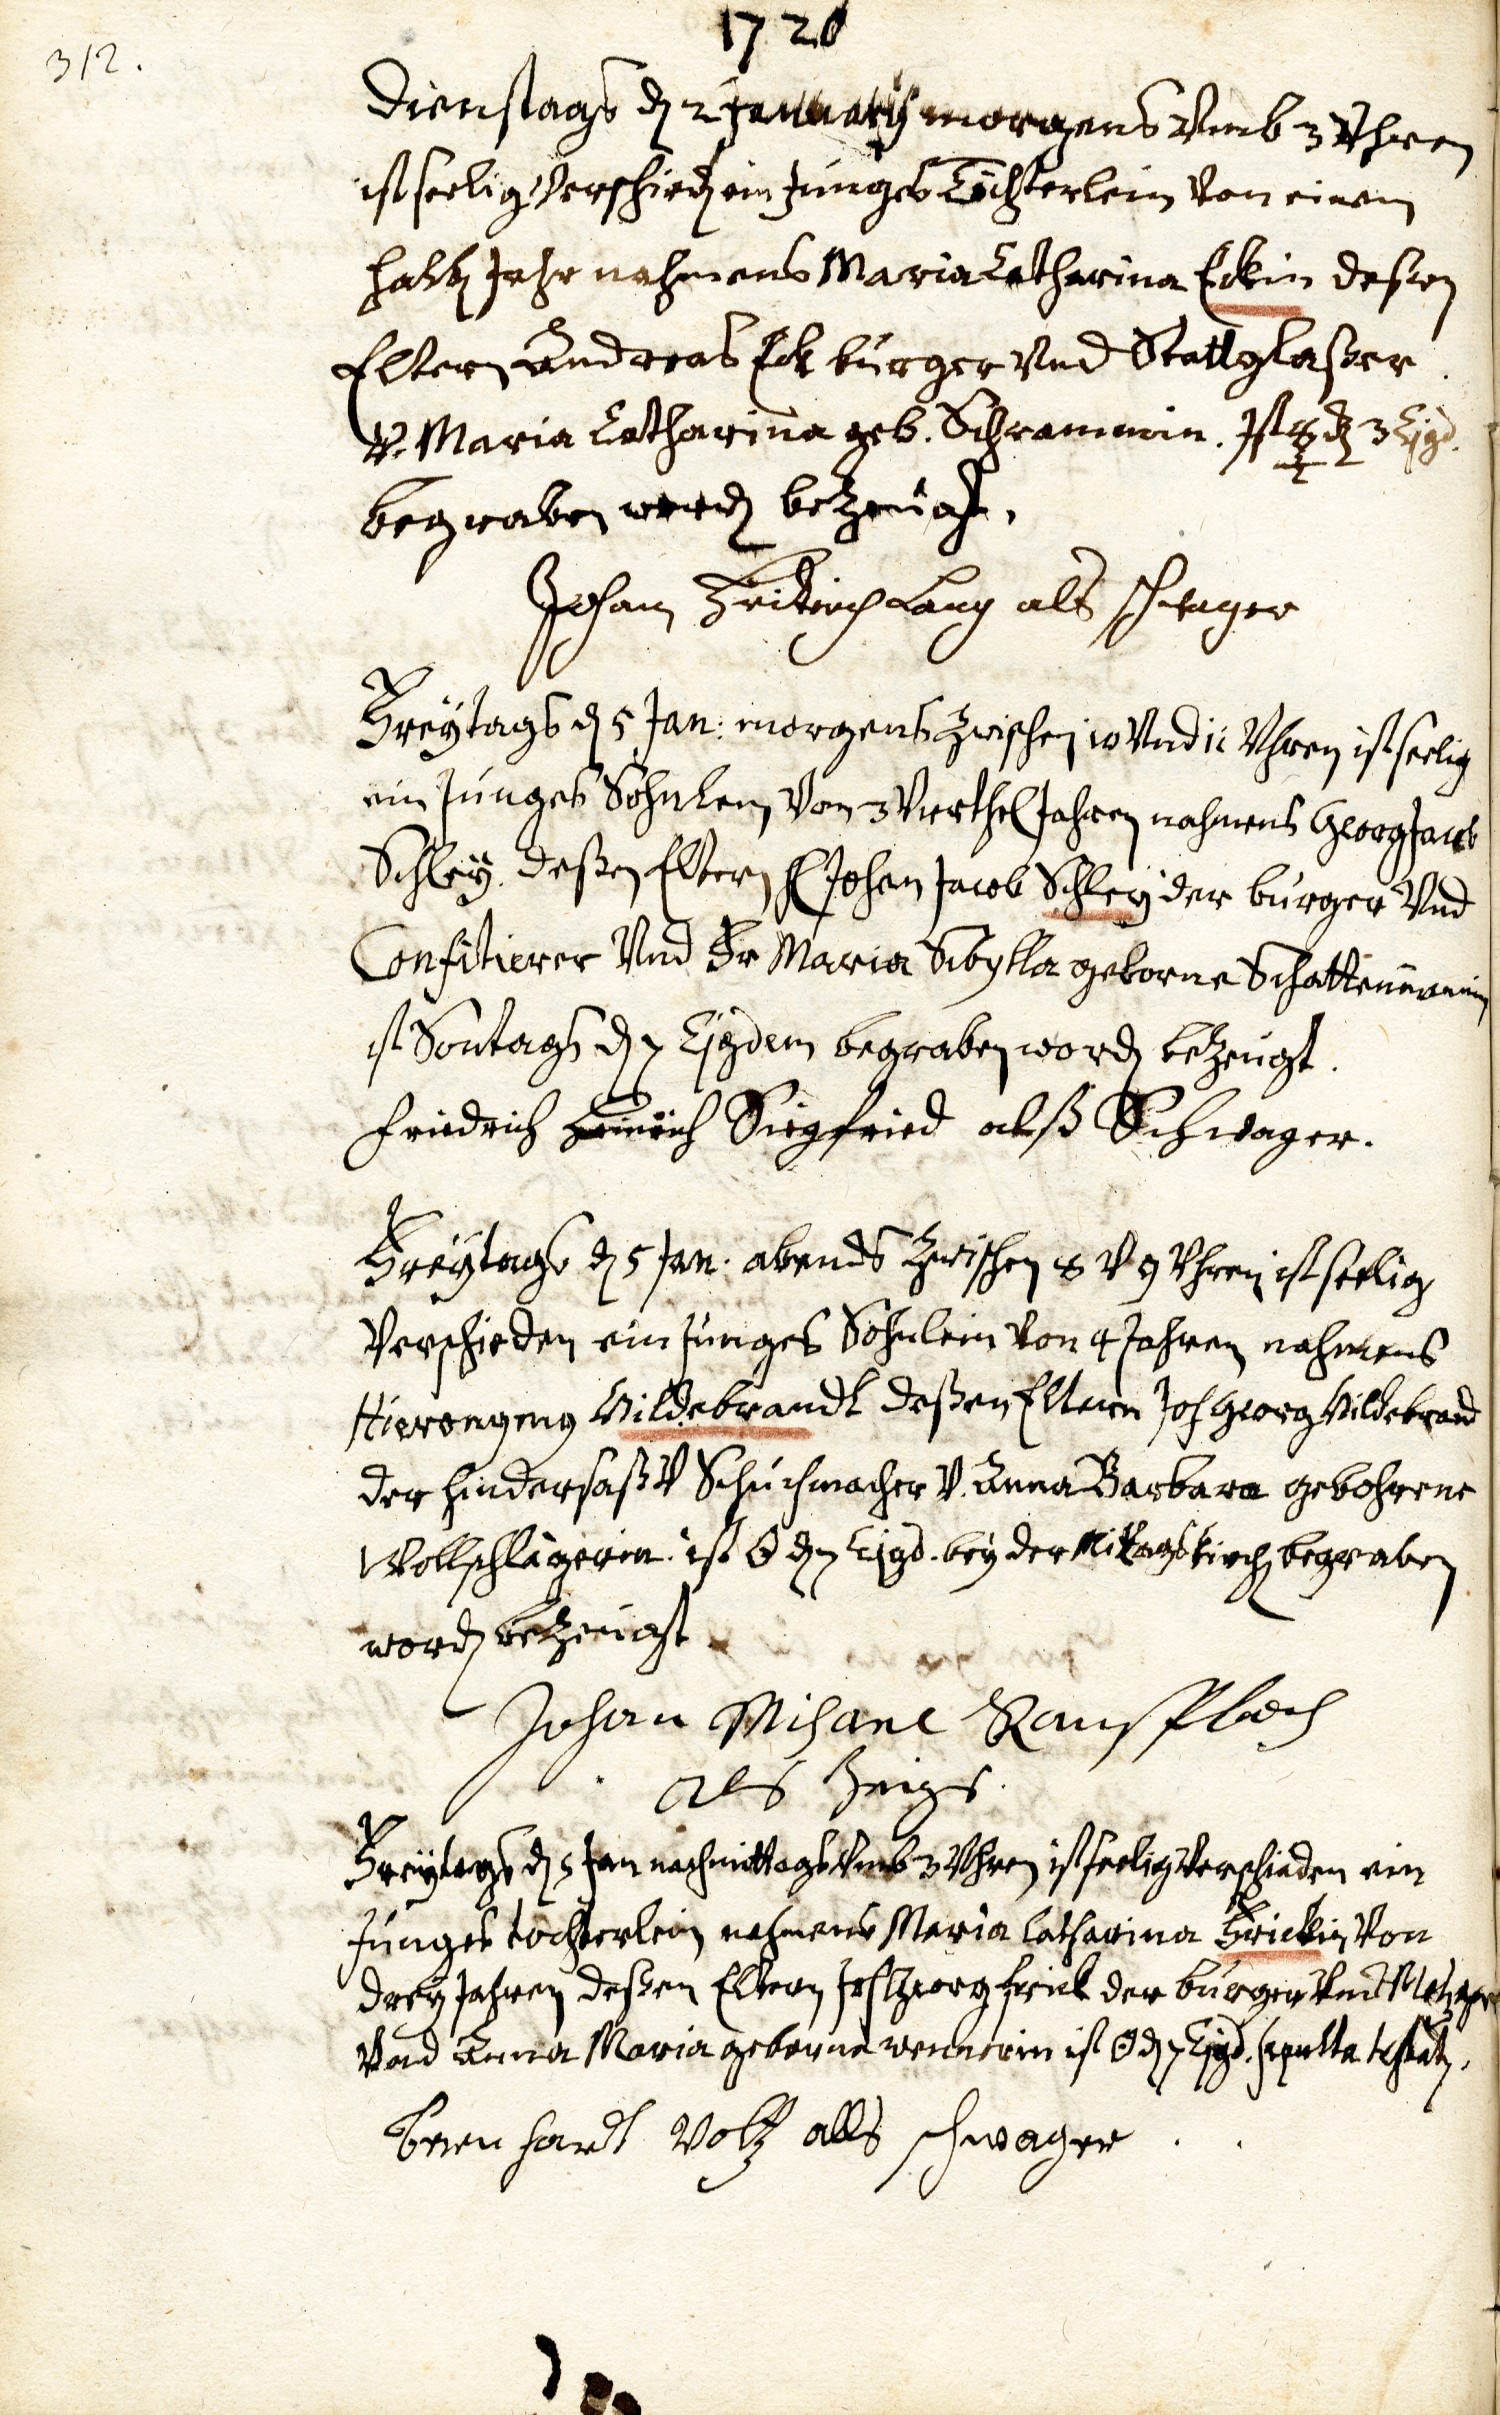 1720
312.
Dienstags d. 2 Januarij morgens Umb 3 Uhren
ist seelig verschied ein junges Töchterlein von einem
halb Jahr nahmens Maria Catharina Eckin deßen
Eltern Andreas Eck burger Und Stattglaßer
V. Maria Catharina geb. Schrammin. Ist ☿ d. 3 Ejusd.
begraben word bezeugt.
Johan Fridrich Lang als schwager
Freytags d. 5 Jan: morgens zwischen 10 Und 11 Uhren ist seelig
ein junges Söhnlein Von 3 Vierthel Jahren nahmens Georg Jacob
Schley. deßen Eltern H Johan Jacob Schley der burger Und
Confitierer Und Fr Maria Sibylla geborne Schattenmannin
ist Sontags d. 7 Ejusdem begraben word bezeugt.
Friedrich Heinrich Siegfried alß Schwager.
Freytags d. 5 Jan. abends zwischen 8 V 9 Uhren ist seelig
Verschieden ein junges Söhnlein von 4 Jahren nahmens
Hieronymus Hildebrandt deßen Eltern Joh Georg Hildebrand
der hindersaß V Schuchmacher V. Anna Barbara gebohrene
Wollschlägerin. ist ☉ d. 7 Ejusd. bey der Mitagskirch begraben
word bezeugt
Johan Michael
als Zeige.
Freytags d. 5 Jan nachmittags Umb 3 Uhren ist seelig verschieden ein
junges töchterlein nahmens Maria Catharina Frickin Von
drey Jahren deßen Eltern Joh Georg Frick der burger Und Metzger
Und Anna Maria geborne wennerin ist ☉ d. 7 Ejusd. sepulta
bernhardt Voltz alls schwager